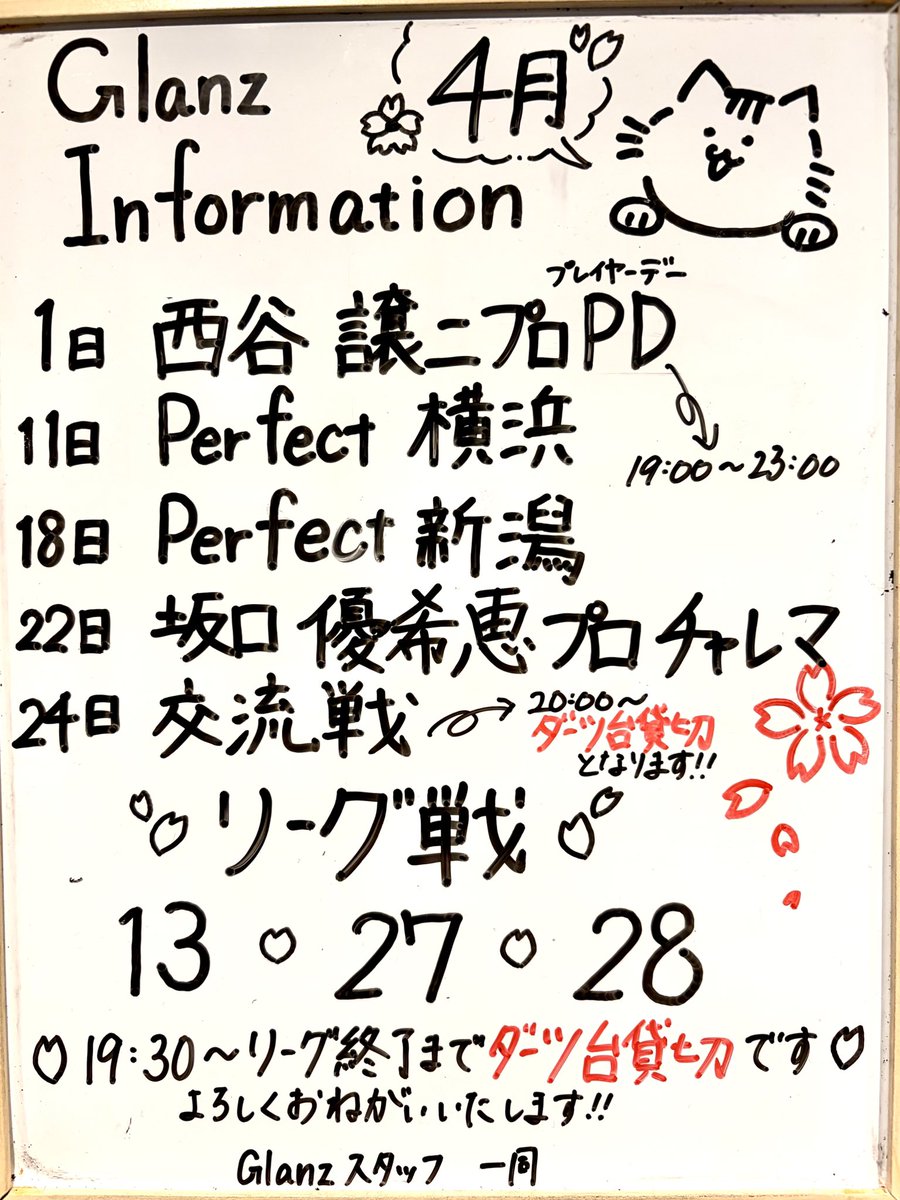 Glanz 4月
Information
プレイヤーデー
1日 西谷 譲二プロPD
19:00～23:00
11日 Perfect 横浜
18日 Perfect 新潟
22日 坂口 優希恵プロ チャレマ
24日 交流戦
20:00～
ダーツ台貸切
となります!!
リーグ戦
13 ♡ 27 ♡ 28
♡ 19:30～リーグ終了までダーツ台貸切です ♡
よろしくおねがいいたします!!
Glanzスタッフ 一同